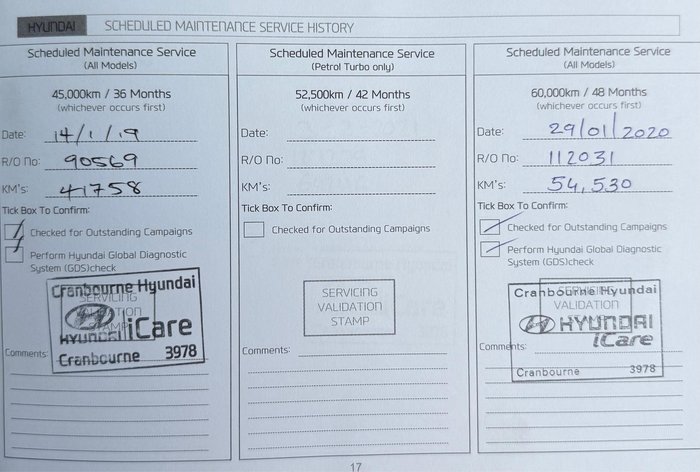 HYUNDAI SCHEDULED MAINTENANCE SERVICE HISTORY
Scheduled Maintenance Service
(All Models)
45,000km / 36 Months
(whichever occurs first)
Date: 14/1/19
R/O No: 90569
KM's: 41758
Tick Box To Confirm:
Checked for Outstanding Campaigns
Perform Hyundai Global Diagnostic
System (GDS)check
Cranbourne Hyundai
SERVICING
HYUNDAI iCare
Cranbourne 3978
Comments:
Scheduled Maintenance Service
(Petrol Turbo only)
52,500km / 42 Months
(whichever occurs first)
Date:
R/O No:
KM's:
Tick Box To Confirm:
Checked for Outstanding Campaigns
SERVICING
VALIDATION
STAMP
Comments:
Scheduled Maintenance Service
(All Models)
60,000km / 48 Months
(whichever occurs first)
Date: 29/01/2020
R/O No: 112031
KM's: 54,530
Tick Box To Confirm:
Checked for Outstanding Campaigns
Perform Hyundai Global Diagnostic
System (GDS)check
Cranbourne Hyundai
SERVICING
VALIDATION
HYUNDAI
iCare
Comments:
Cranbourne 3978
17